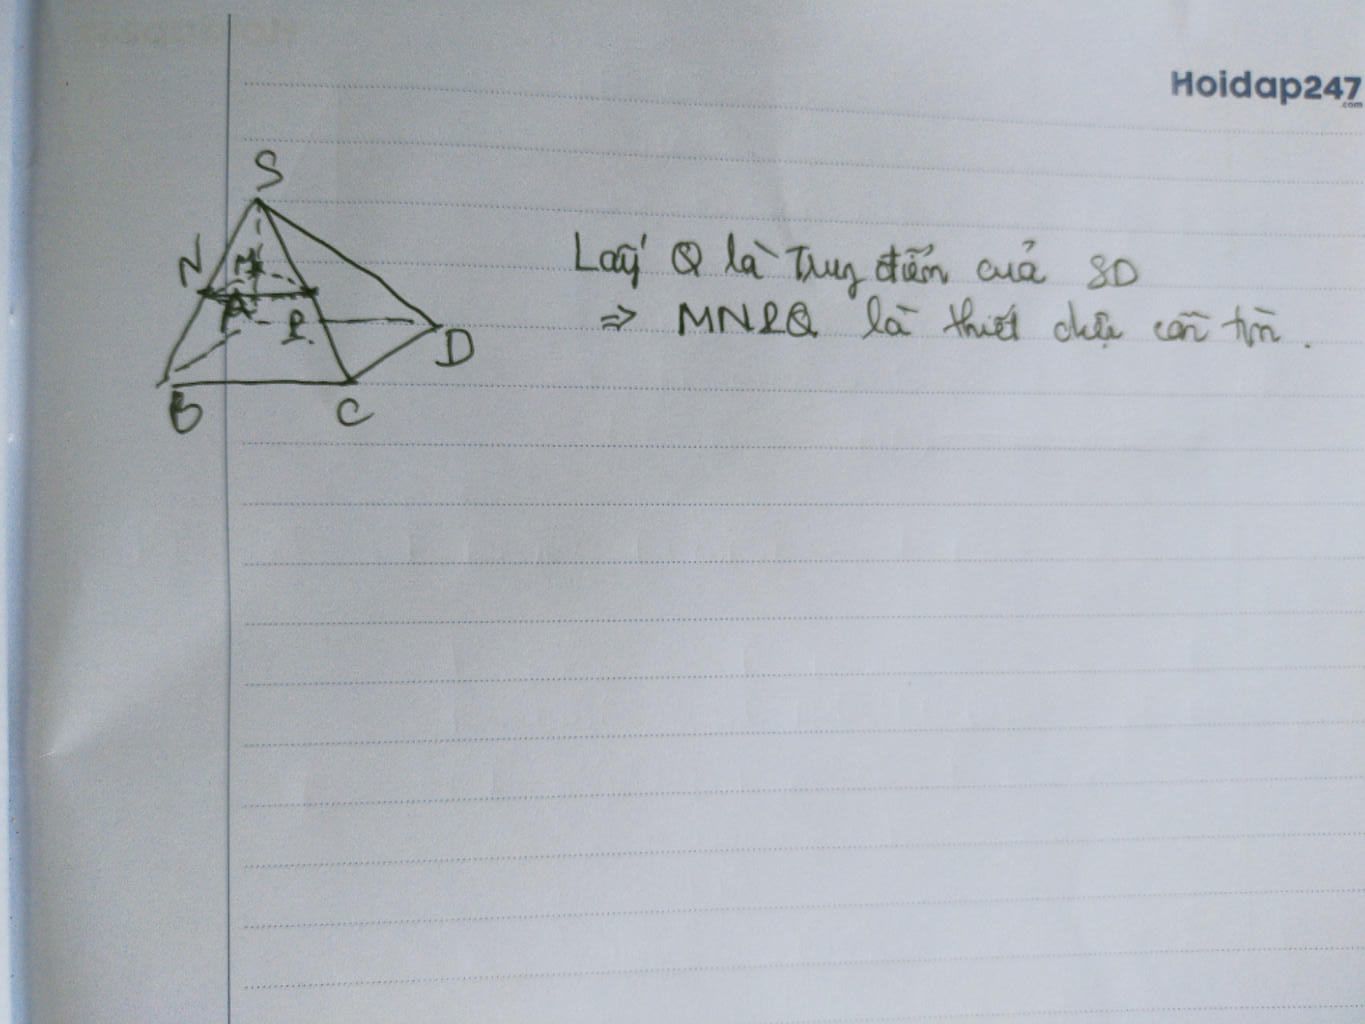 Hoidap247
.com
S
N
M
A
P
D
B
C
Lấy Q là Trung điểm của SD
=> MNPQ là thiết diện cần tìm.